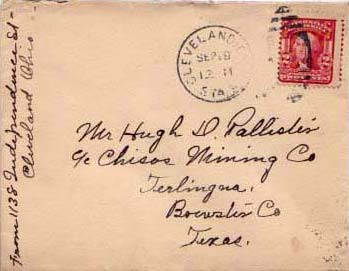 From 1138 Independence St-
Cleveland Ohio
CLEVELAND, O
SEP 9
12 M
STA.
2 2
Mr Hugh D. Pallister
c/o Chisos Mining Co
Terlingua,
Brewster Co
Texas.